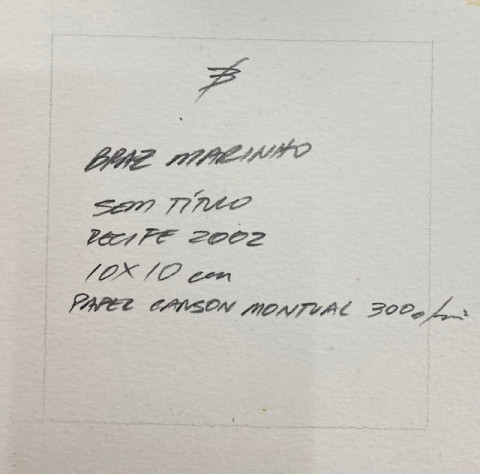 BRAZ MARINHO
SEM TÍTULO
RECIFE 2002
10X10 cm
PAPEL CANSON MONTVAL 300g/m²